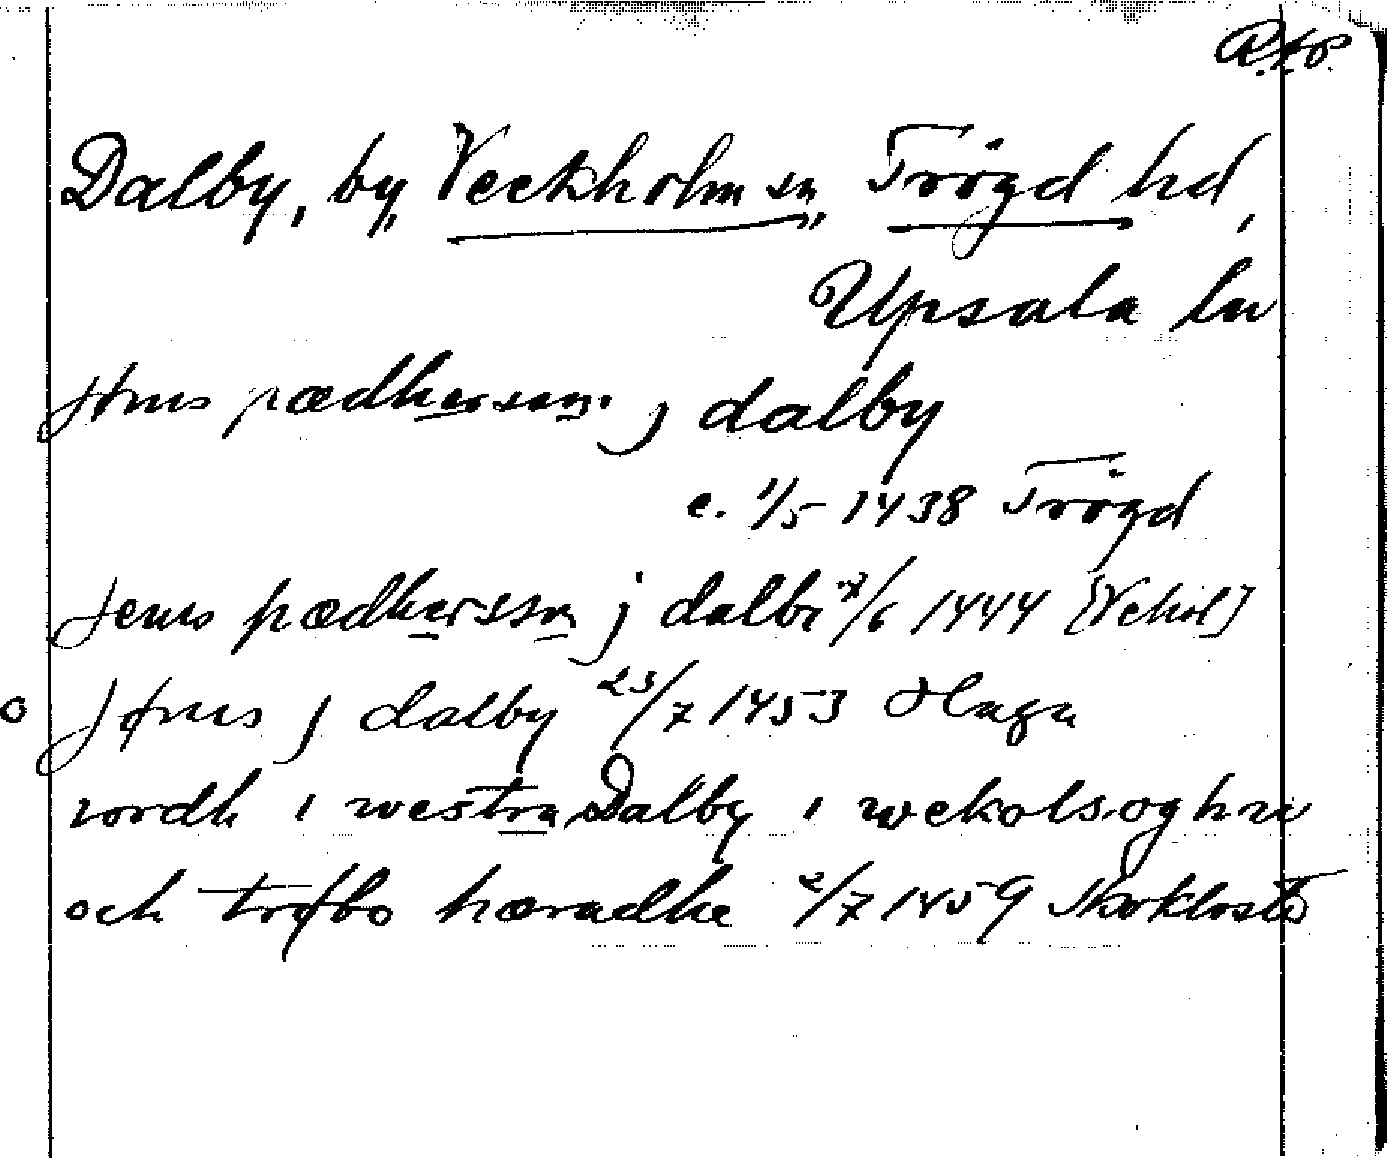 Dalby, by, Veckholm sn, Trögd hd,
Upsala ln
Jöns pædhersson j dalby
e. 1/5 1438 Trögd
Jenis pædhersson j dalbi /6 1444 [Vekhol]
o Jønis j dalby 23/7 1453 Haga
iordh i westra Dalby i wekolsoghn
och trøbo hæradhe 2/7 1459 Skoklosts